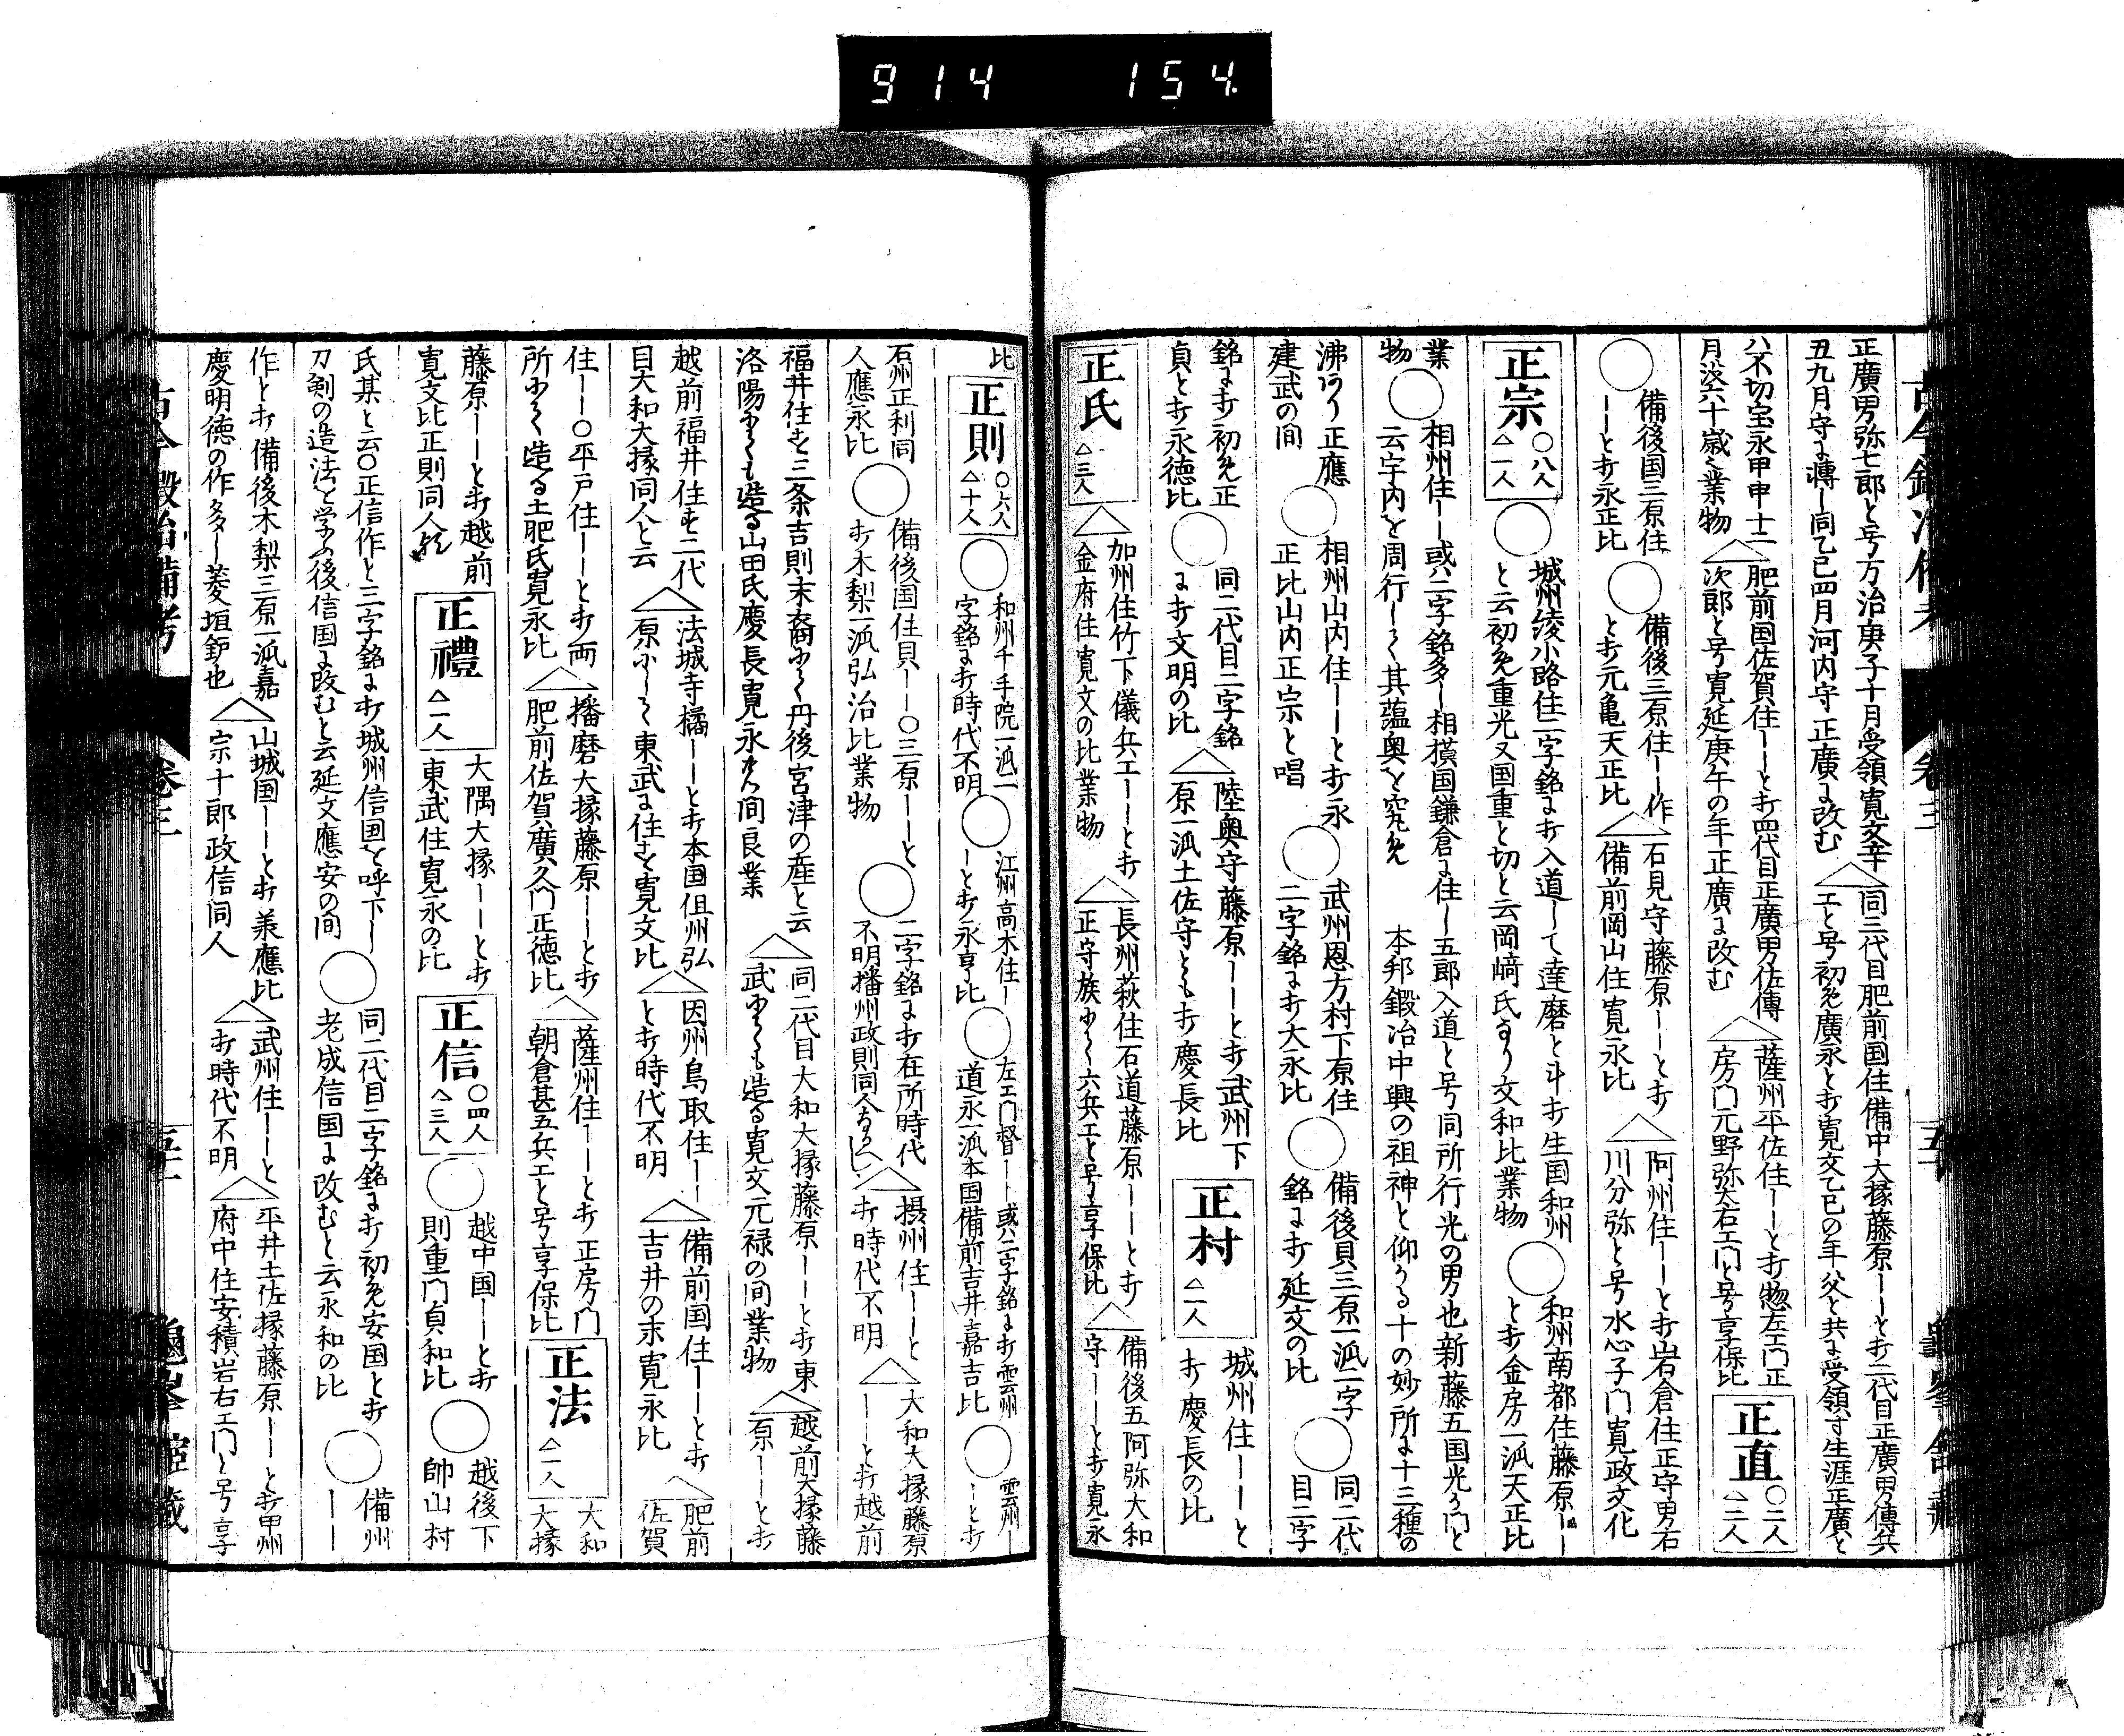 914 154.
正廣男弥七郎と号万治庚子十月受領寛文辛
丑九月守に轉し同乙巳四月河内守正廣に改む
△同三代目肥前国住備中大掾藤原――と打二代目正廣男傳兵
エと号初め廣永と打寛文乙巳の年父と共に受領す生涯正廣と
ハ不切宝永甲申十二
月没六十歳之業物
△肥前国佐賀住――と打四代目正廣男佐傳
次郎と号寛延庚午の年正廣に改む
△薩州平佐住――と打惣左エ門正
房門元野弥太右エ門と号享保比
正直 ○二人 △二人
○備後国三原住
――と打永正比
○備後三原住――作
と打元亀天正比
△石見守藤原――と打
備前岡山住寛永比
△阿州住――と打岩倉住正守男右
川分弥と号水心子門寛政文化
正宗 ○八人 △一人
○城州綾小路住二字銘に打入道して達磨と斗打生国和州
と云初め重光又国重と切と云岡﨑氏なり文和比業物
○和州南都住藤原――
と打金房一派天正比
業
物
○相州住――或ハ二字銘多し相摸国鎌倉に住し五郎入道と号同所行光の男也新藤五国光の門と
云宇内を周行して其蘊奥を究め 本邦鍛冶中興の祖神と仰くる十の妙所に十三種の
沸あり正應
建武の間
○相州山内住――と打永
正比山内正宗と唱
○武州恩方村下原住
二字銘に打大永比
○備後貝三原一派二字
銘に打延文の比
○同二代
目二字
銘に打初め正
貞と打永徳比
○同二代目二字銘
に打文明の比
△陸奥守藤原――と打武州下
原一派土佐守とも打慶長比
正村 △一人
城州住――と
打慶長の比
正氏 △三人
△加州住竹下儀兵エ――と打
金府住寛文の比業物
△長州萩住石道藤原――と打
正守族にて六兵エと号享保比
△備後五阿弥大和
守――と打寛永
比
正則 ○六人 △十人
○和州千手院一派二
字銘に打時代不明
○江州高木住――
――と打永享比
○左エ門督――或二字銘に打雲州
道永一派本国備前吉井嘉吉比
○雲州――
――と打
石州正利同
人應永比
○備後国住貝――○三原――と
打木梨一派弘治比業物
○二字銘に打在所時代
不明播州政則同人なるへし
△摂州住――と
打時代不明
△大和大掾藤原
――と打越前
福井住す三条吉則末裔にて丹後宮津の産と云
洛陽にても造る山田氏慶長寛永の間良業
△同二代目大和大掾藤原――と打東
武にても造る寛文元禄の間業物
△越前大掾藤
原――と打
越前福井住す二代
目大和大掾同人と云
△法城寺橘――と打本国但州弘
原にして東武に住す寛文比
△因州鳥取住――
と打時代不明
△備前国住――と打
吉井の末寛永比
△肥前
佐賀
住――○平戸住――と打両
所にて造る土肥氏寛永比
△播磨大掾藤原――と打
肥前佐賀廣久門正徳比
△薩州住――と打正房門
朝倉甚五兵エと号享保比
正法 △一人
大和
大掾
藤原――と打越前
寛文比正則同人歟
正禮 △一人
大隅大掾――と打
東武住寛永の比
正信 ○四人 △三人
○越中国――と打
則重門貞和比
○越後下
帥山村
氏某と云○正信作と三字銘に打城州信国を呼下し
刀剣の造法を学ふ後信国に改むと云延文應安の間
○同二代目二字銘に打初め安国と打
老成信国に改むと云永和の比
○備州
――
作と打備後木梨三原一派嘉
慶明徳の作多し菱垣鈩也
△山城国――と打承應比
宗十郎政信同人
△武州住――と
打時代不明
△平井土佐掾藤原――と打甲州
府中住安積岩右エ門と号享
古今鍛冶備考 巻三